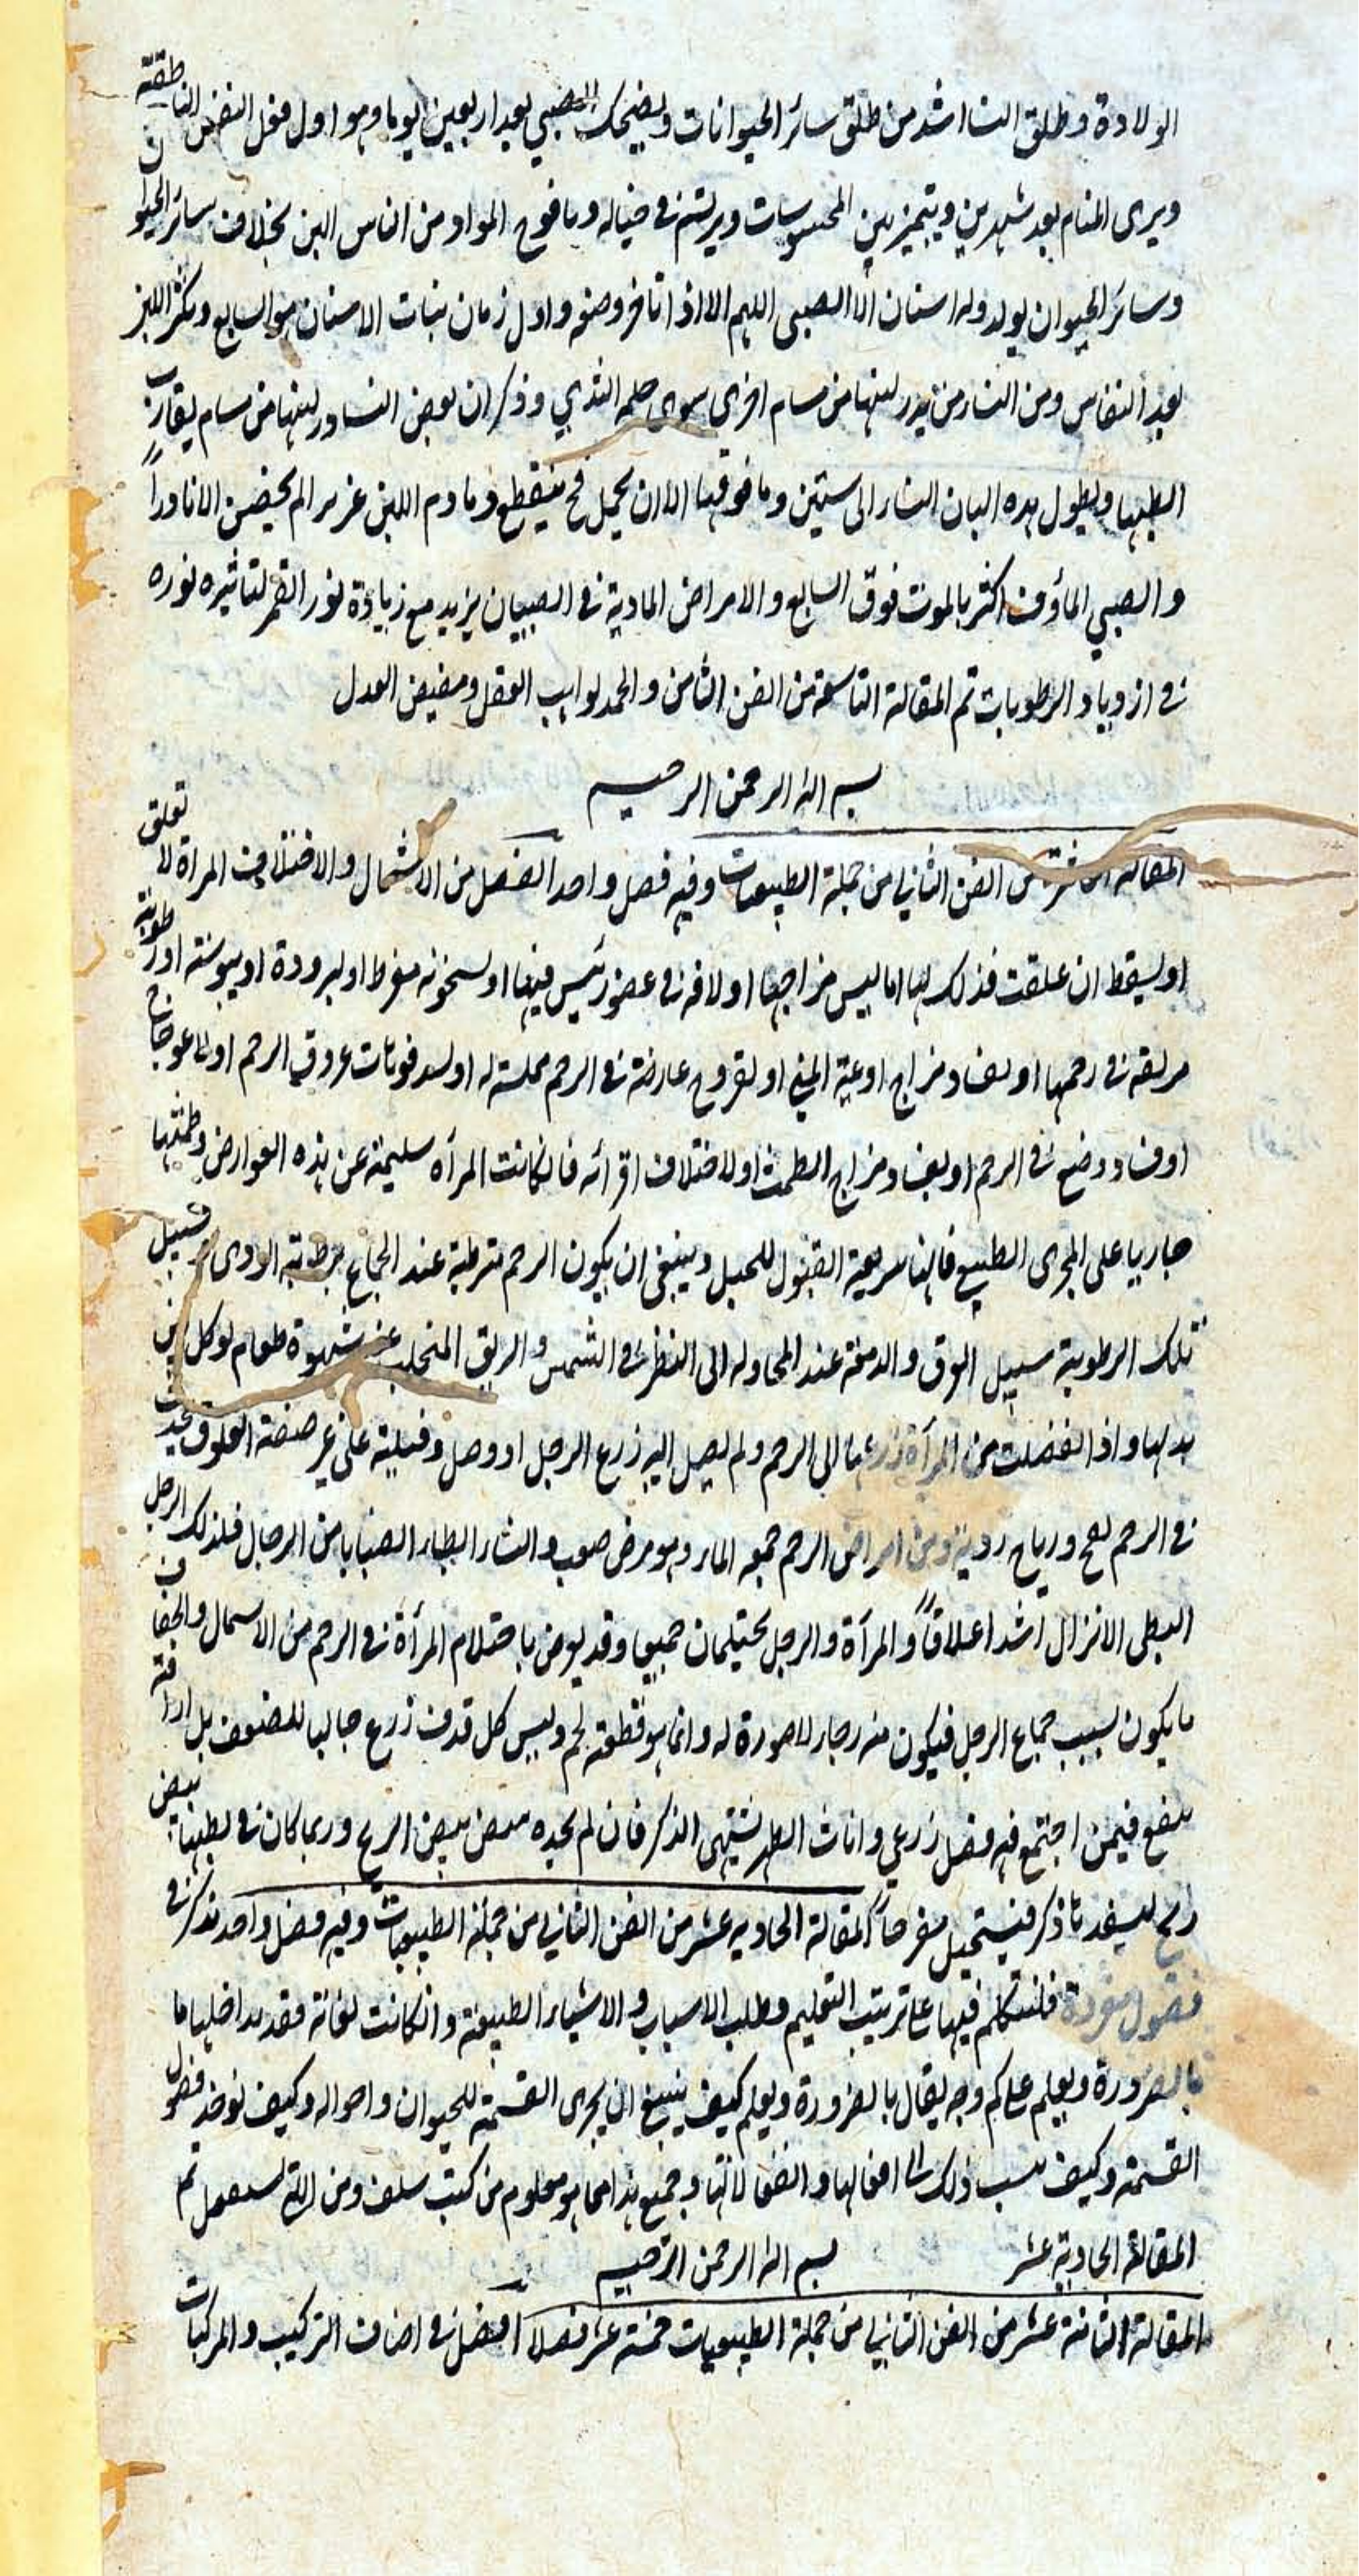 الولادة وطلق النساء اشد من طلق سائر الحيوانات ويضحك الصبي بعد اربعين يوما وهو اول فعل النفس الناطقة
ويرى المنام بعد شهرين ويتميز بين المحسوسات ويرتسم في خياله ويافوخ المولود من الناس لين بخلاف سائر الحيوان
وسائر الحيوان يولد وله اسنان الا الصبى اللهم الا اذا تافر وضعه واول زمان نبات الاسنان هو السابع ويكثر اللبن
بعد النفاس ومن النساء من يدر لبنها من مسام اخرى سوى حلمه الثدي وذكر ان بعض النساء در لبنها من مسام يقارب
ابطيها ويطول مده البان النساء الى ستين وما فوقها الا ان يحمل فح ينقطع وما دام اللبن غزيرا لم يحضن الا نادراً
والصبي الماؤف اكثر بالموت فوق السابع والامراض المادية في الصبيان يزيد مع زيادة نور القمر لتاثيره نوره
في ازدياد الرطوبات تم المقالة التاسعة من الفن الثامن والحمد لواهب العقل ومفيض العدل
بسم الله الرحمن الرحيم
المقالة العاشرة من الفن الثاني من جملة الطبيعيات وفيه فصل واحد الفصل من الاشتمال والاختلاف المراة لا تعلق
او يسقط ان علقت فذلك لها اما ليبس مزاجها او لافه في عضو رئيس فيها او لسخونه مفرط او لبرودة او يبوسته او رطوبة
مزلقه في رحمها او لفساد مزاج اوعية المني او لقروح عارضة في الرحم مملسة له او لسد فوهات عروق الرحم او لاعوجاج
او فساد وضع في الرحم او لفساد مزاج الطمث او لاختلاف اقرائه فان كانت المرأه سليمة عن هذه العوارض وطمثها
جاريا على المجرى الطبيع فانها سريعة القبول للحبل وينبغى ان يكون الرحم مترطبة عند الجماع برطوبته الردى فسبيل
تلك الرطوبة سبيل العرق والدمعة عند المحاوله الى النظر في الشمس والريق المتحلب عند شهوة طعام يوكل بين
يديها واذا انفصلت من المرأة زرعها الى الرحم ولم يصل اليه زرع الرجل او وصل وقبلته على غير صفة العلوق يحدث
في الرحم نفح ورياح ردية ومن امراض الرحم جمعه الماء وهو مرض صعب والنساء ابطاء انصبابا من الرجال فلذلك الرجل
البطى الانزال اشد اعلاقاً والمرأة والرجل يحتلمان جميعا وقد يعرض باحتلام المرأة في الرحم من الاسمال والجفاف
ما يكون بسبب جماع الرجل فيكون منه رجاء لا صورة له وانما هو قطعة لحم وليس كل قذف زرع جالبا للضعف بل اراقته
ينفع فيمن اجتمع فيه فضل زرعي واناث الطير تشتهى الذكر فان لم يجده يبيض بيض الريح وربما كان في بطنها بيض
ريح ليسفد تا ذكر فيستحيل مفرحاً المقالة الحاديه عشر من الفن الثاني من جملة الطبيعيات وفيه فصل واحد نذكر في
فصول مفردة فلنتكلم فيها على ترتيب التعليم وطلب الاسباب والاشياء الطبيعة وان كانت لغائة فقد يداخلها ما
بالضرورة ويعلم على كم وجه يقال بالضرورة ويعلم كيف ينبغ ان يجرى القسمة للحيوان واحواله وكيف يوخذ فصول
القسمة وكيف ينسب ذلك الى افعالها وانفعالاتها وجميع هذا مما هو معلوم من كتب سلف ومن التي سيعمل تم
المقالة الحادية عشر بسم الله الرحمن الرحيم
المقالة الثانية عشر من الفن الثاني من جملة الطبيعيات خمسة عشر فصلا ا فصل في اصناف التركيب والمركبات